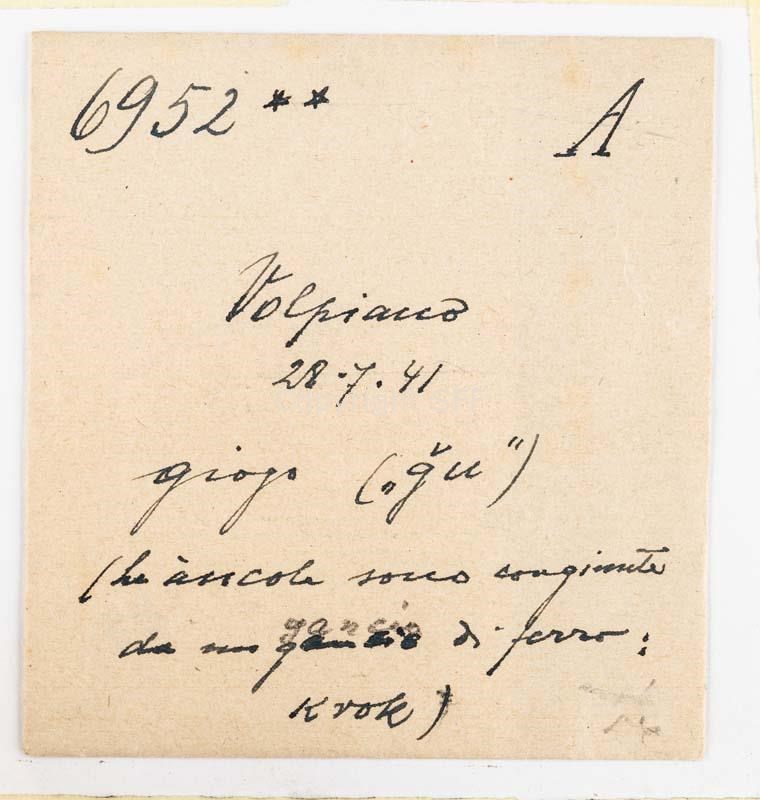 6952 ** A
Volpiano
28.7.41
giogo („ğu")
(le àncole sono congiunte
gancio
da un gancio di ferro:
krok)